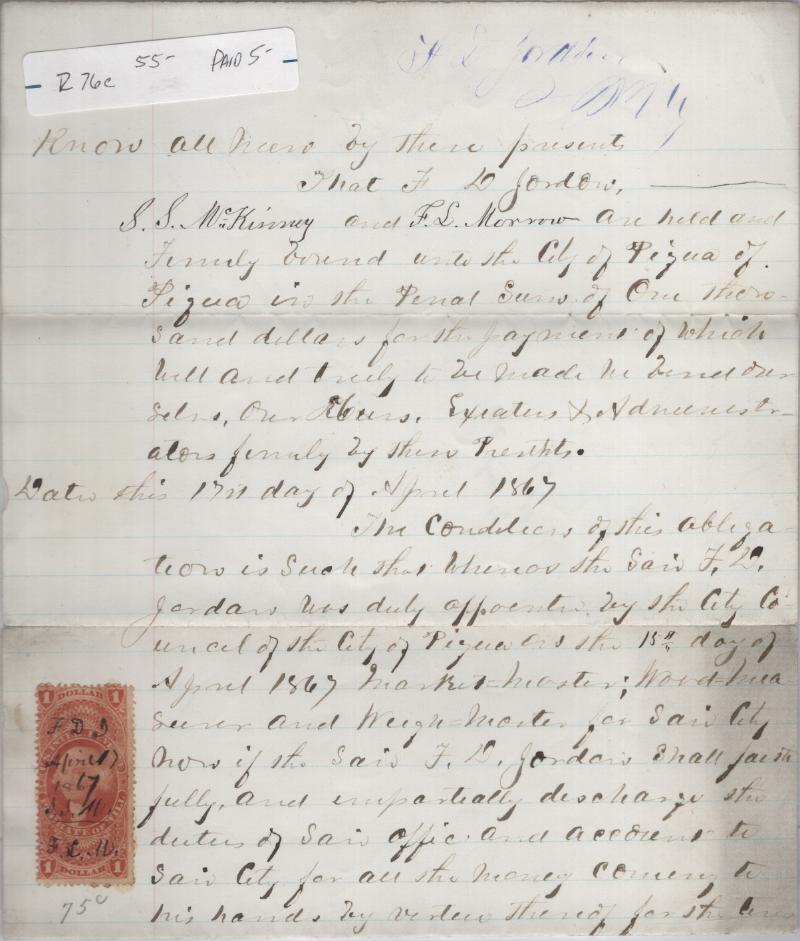 R 76c 55- PAID 5-
F D Jordan
Know all Men by these presents
That F D Jordon,
S. S. McKinney and F. L. Morrow are held and
firmly bound unto the City of Piqua of
Piqua in the Penal Sum of One thou-
sand dollars for the payment of which
Well and truly to be made We bend our
selvs, Our Heirs, Exeators & Administr-
ators firmly by these Presents.
Date this 17th day of April 1867
The Condition of this obliga-
tion is Such that Whereas the Said F. D.
Jordan was duly appointe by the City Co-
uncil of the City of Piqua on the 15th day of
April 1867 Market-Master, Wood-Mea
surer and Weigh-Master for Said City
Now if the Said F. D. Jordan Shall faith
fully, and impartially discharge the
duties of Said offic and account to
Said City for all the Money Coming to
his hands by virtue thereof for the
1 DOLLAR 1
F D J
April 17
1867
S. S. M.
F. L. M.
1 DOLLAR 1
75c